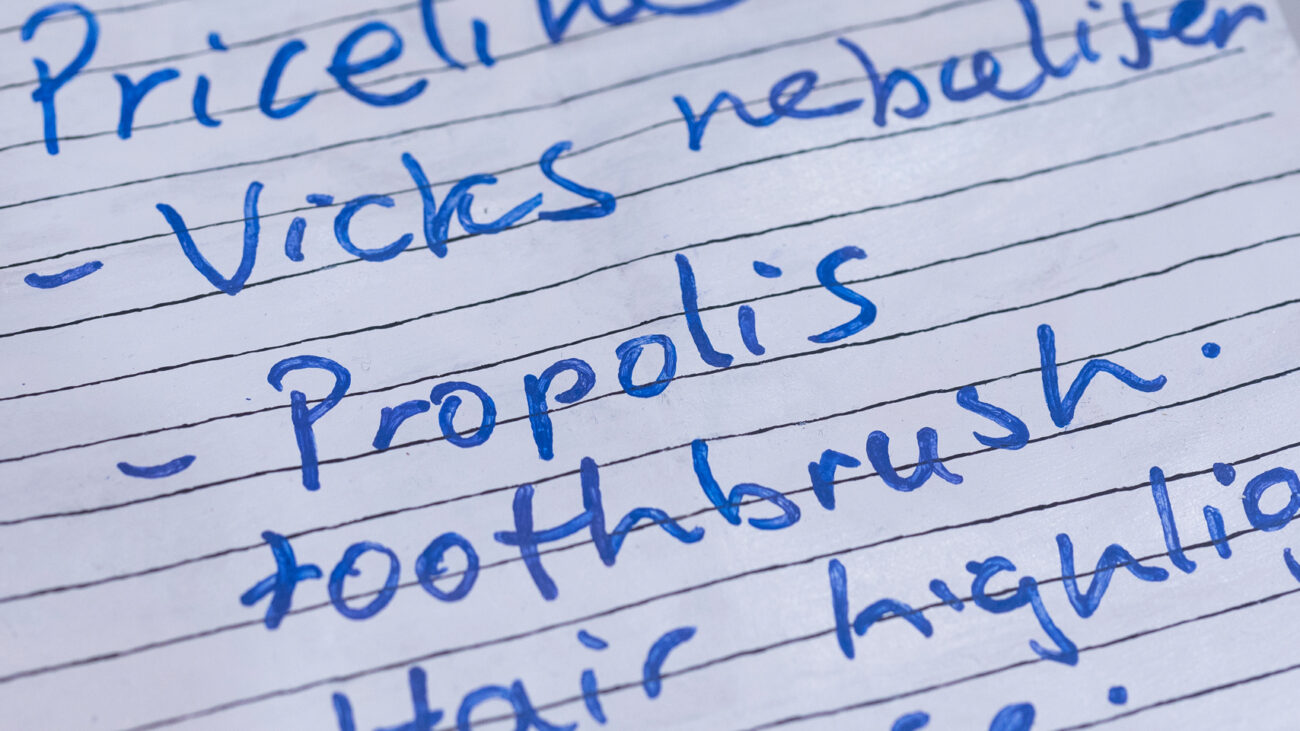 Priceline
- Vicks nebuliser
- Propolis
toothbrush.
Hair highlig